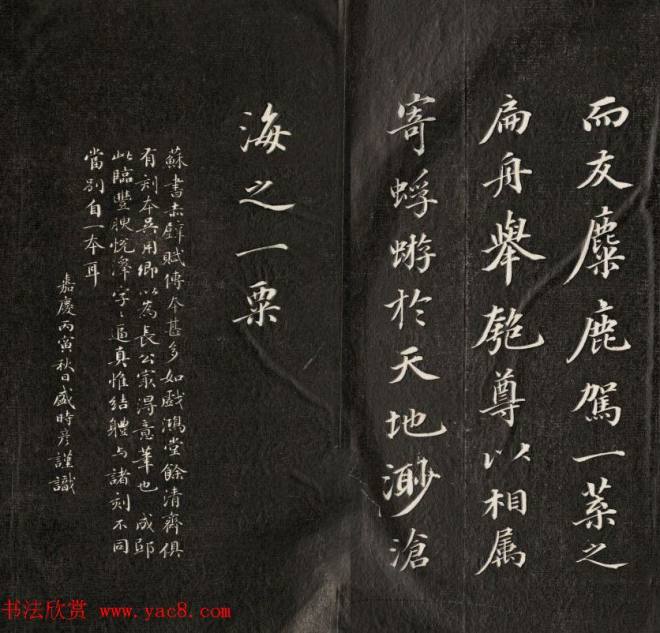 而友麋鹿駕一葉之
扁舟舉匏尊以相属
寄蜉蝣於天地渺滄
海之一粟
蘇書赤壁賦傳本甚多如戲鴻堂餘清齋俱
有刻本吳用卿以為長公家得意筆也成邸
此臨豐腴悅澤字々逼真惟結體与諸刻不同
當別自一本耳
嘉慶丙寅秋日盛時彥謹識
书法欣赏 www.yac8.com